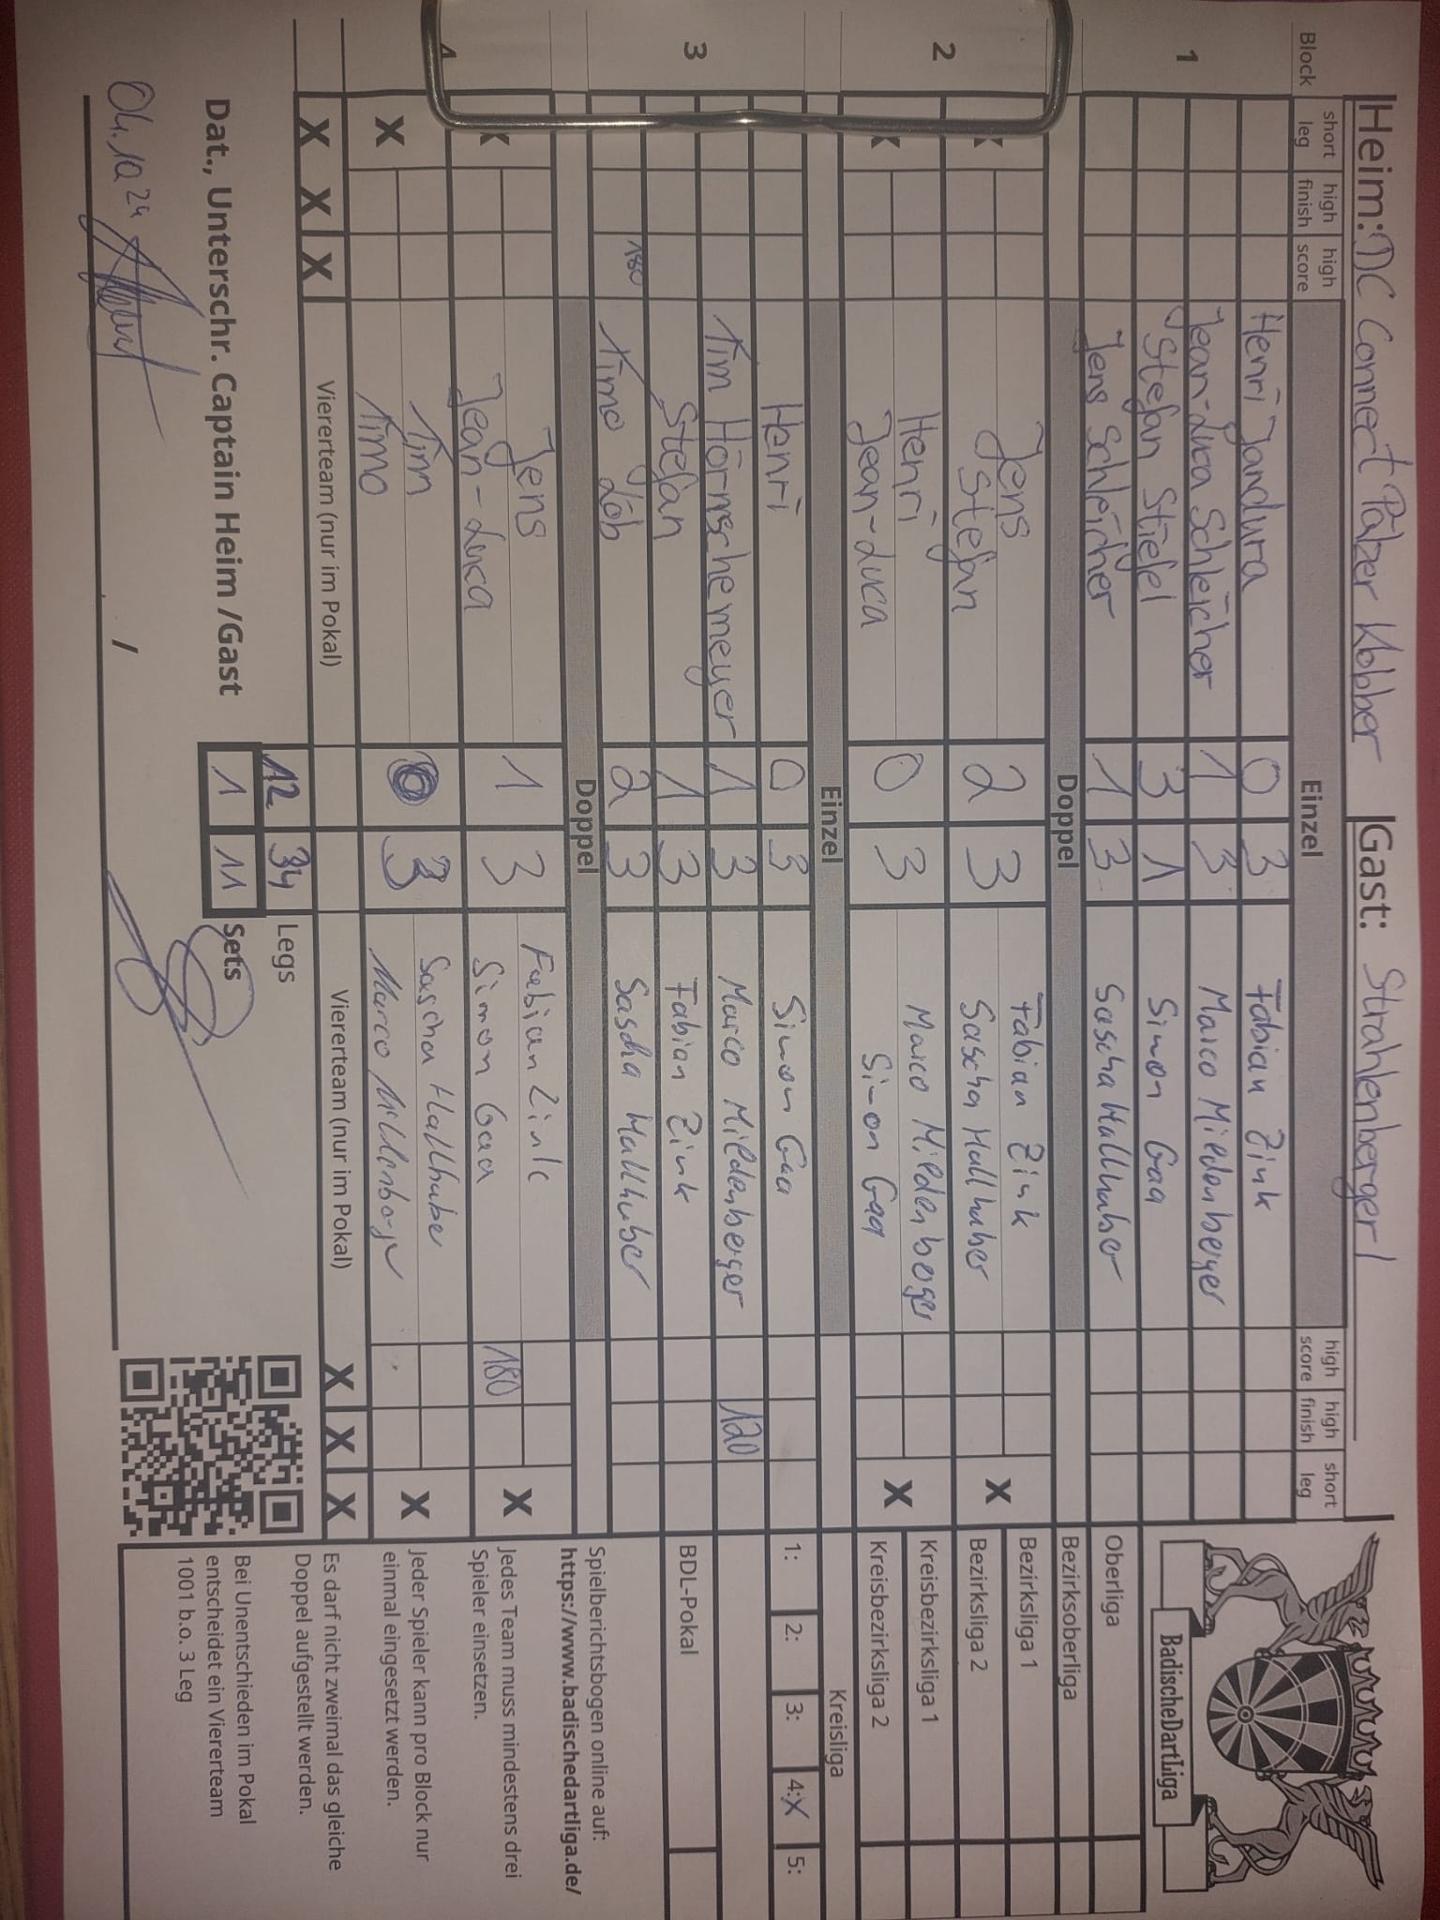 Heim: DC Connect Pälzer Kobber Gast: Strahlenberger 1
Block short leg high finish high score Einzel high score high finish short leg
1 Henri Jandura 0 3 Fabian Zink
Jean-Luca Schleicher 1 3 Marco Mildenberger
Stefan Stiefel 3 1 Simon Gaa
Jens Schleicher 1 3 Sascha Hallhuber
Doppel
2 Jens Fabian Zink
X Stefan 2 3 Sascha Hallhuber X
Henri Marco Mildenberger
X Jean-Luca 0 3 Simon Gaa X
Einzel
3 Henri 0 3 Simon Gaa
Tim Hörnschemeyer 1 3 Marco Mildenberger 120
Stefan 1 3 Fabian Zink
180 Timo Löb 2 3 Sascha Hallhuber
Doppel
4 Jens Fabian Zink
X Jean-Luca 1 3 Simon Gaa 180 X
Tim Sascha Hallhuber
X Timo 0 3 Marco Mildenberger X
X X X Viererteam (nur im Pokal) Viererteam (nur im Pokal) X X X
12 34 Legs
Dat., Unterschr. Captain Heim /Gast 1 11 Sets
04.10 24 /
BadischeDartLiga
Oberliga
Bezirksoberliga
Bezirksliga 1
Bezirksliga 2
Kreisbezirksliga 1
Kreisbezirksliga 2
Kreisliga
1: 2: 3: 4:X 5:
BDL-Pokal
Spielberichtsbogen online auf:
https://www.badischedartliga.de/
Jedes Team muss mindestens drei
Spieler einsetzen.
Jeder Spieler kann pro Block nur
einmal eingesetzt werden.
Es darf nicht zweimal das gleiche
Doppel aufgestellt werden.
Bei Unentschieden im Pokal
entscheidet ein Viererteam
1001 b.o. 3 Leg